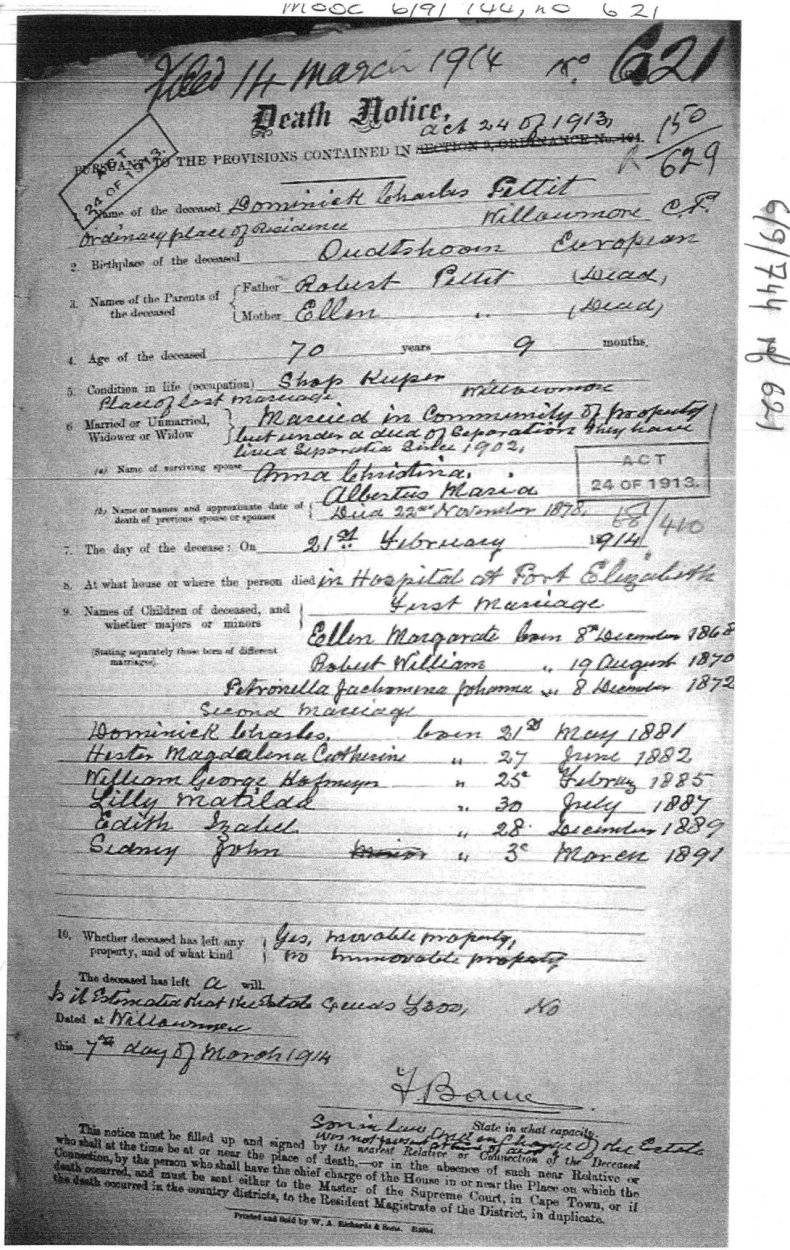 MOOC 6/9/744, no 621
Filed 14 March 1914 No. 621
Death Notice,
Act 24 of 1913,
PURSUANT TO THE PROVISIONS CONTAINED IN SECTION 9, ORDINANCE No. 104.
150
629
ACT
24 OF 1913.
Name of the deceased Dominick Charles Pettit
Ordinary place of Residence Willowmore C.P.
2. Birthplace of the deceased Oudtshoorn European
3. Names of the Parents of the deceased
Father Robert Pettit (Dead)
Mother Ellen " (Dead)
4. Age of the deceased 70 years 9 months.
5. Condition in life (occupation) Shop Keeper
Place of last marriage Willowmore
6 Married or Unmarried, Widower or Widow
Married in Community of Property
but under a deed of Separation they have
lived Separate Since 1902.
(a) Name of surviving spouse Anna Christina.
ACT
24 OF 1913.
(b) Name or names and approximate date of death of previous spouse or spouses
Albertus Maria
Died 22nd November 1878.
68/410
7. The day of the decease: On 21st February 1914
8. At what house or where the person died in Hospital at Port Elizabeth
9. Names of Children of deceased, and whether majors or minors
(Stating separately those born of different marriages).
First Marriage
Ellen Margarate born 8th December 1868
Robert William " 19 August 1870
Petronella Jachomina Johanna " 8 December 1872
Second Marriage
Dominick Charles. born 21st May 1881
Hester Magdalena Catherine " 27 June 1882
William George Hofmeyer " 25 " February 1885
Lilly Matilda " 30 July 1887
Edith Izabel " 28 December 1889
Sidney John Minor " 3 March 1891
10. Whether deceased has left any property, and of what kind
Yes, movable property,
no immovable property
The deceased has left a will.
Is it Estimated that the Estate Exceeds £300, No
Dated at Willowmore
this 7th day of March 1914
State in what capacity.
Son in law and in Charge of the Estate
was not present
This notice must be filled up and signed by the nearest Relative or Connection of the Deceased
who shall at the time be at or near the place of death,—or in the absence of such near Relative or
Connection, by the person who shall have the chief charge of the House in or near the Place on which the
death occurred, and must be sent either to the Master of the Supreme Court, in Cape Town, or if
the death occurred in the country districts, to the Resident Magistrate of the District, in duplicate.
Printed and Sold by W. A. Richards & Sons.
6/9/744 ref 621